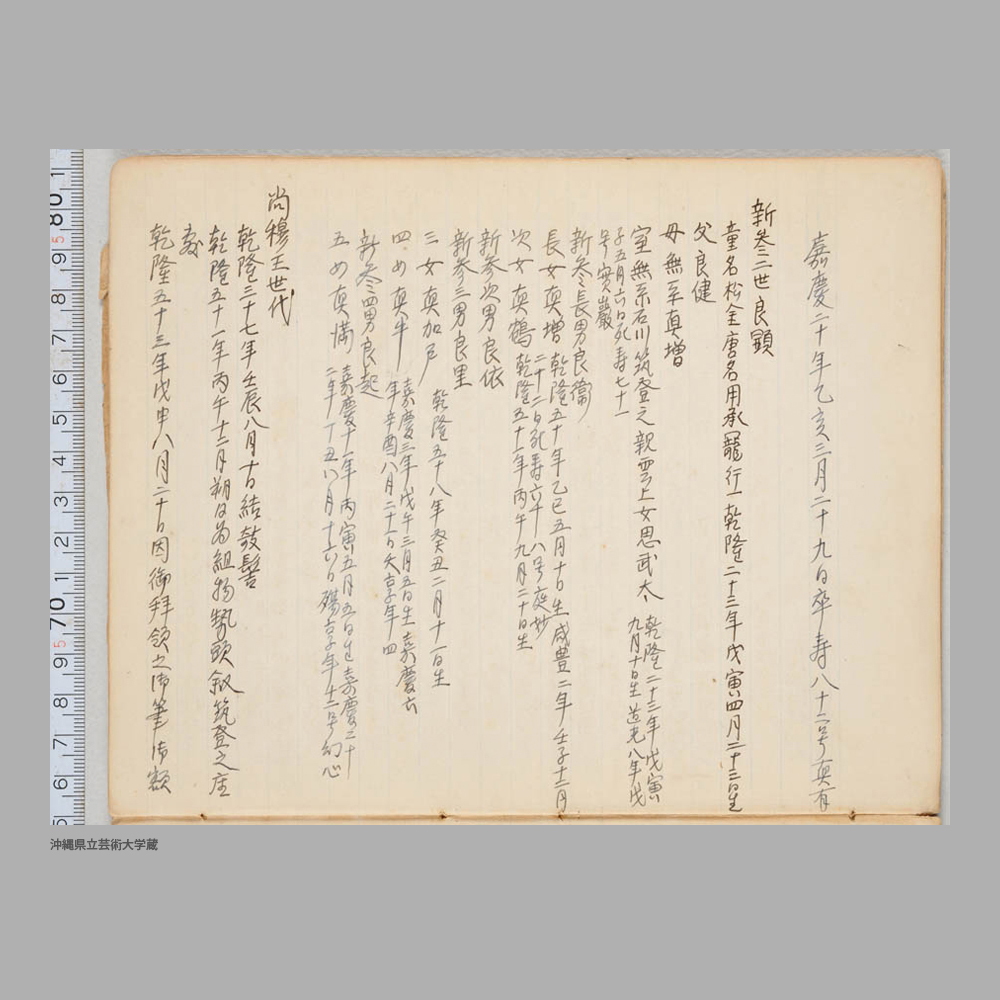 嘉慶二十年乙亥三月二十九日卒寿八十二号真有
新参二世良顕
童名松金唐名用承寵行一乾隆二十三年戊寅四月二十三日生
父良健
母無系真増
室無系石川筑登之親雲上女思武太 乾隆二十三年戊寅
九月十日生道光八年戊
子五月六日死寿七十一
号實巖
新参長男良衞
長女真増 乾隆五十年乙巳五月十日生咸豊二年壬子十二月
二十二日死寿六十八号庭妙
次女真鶴 乾隆五十一年丙午九月二十日生
新参次男良依
新参三男良里
三女真加戸 乾隆五十八年癸丑二月十一日生
四め真牛 嘉慶三年戊午三月五日生嘉慶六
年辛酉八月二十一日夭享年四
新参四男良起
五め真満 嘉慶十一年丙寅五月五日生嘉慶二十
二年丁丑八月十六日殤享年十二号幻心
尚穆王世代
乾隆三十七年壬辰八月十日結敧髻
乾隆五十一年丙午十二月朔日為組物勢頭叙筑登之座
敷
乾隆五十三年戊申八月二十日因御拝領之御筆御額
沖縄県立芸術大学蔵